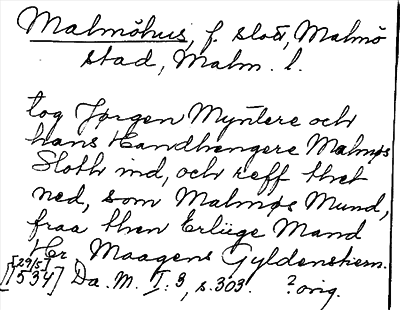 Malmöhus, f. slott, Malmö
stad, Malm. l.
tog Jørgen Myntere och
hans Handhengere Malmøs
Sloth ind, och reff thet
ned, som Malmøs Mund,
fraa then Erlige Mand
Hr Maagens Gyldenstiern.
[29/5]
[1534] Da. M. I: 3, s. 303. ? orig.